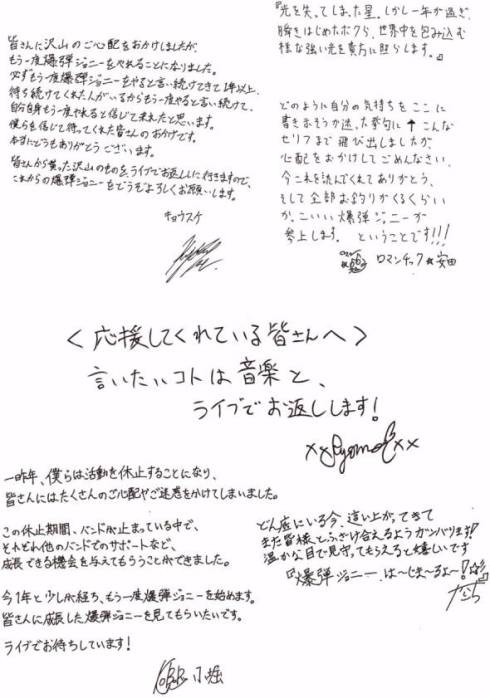 皆さんに沢山のご心配をおかけしましたが、
もう一度爆弾ジョニーをやれることになりました。
必ずもう一度爆弾ジョニーをやると言い続けてきて1年以上、
待ち続けてくれた人がいるからもう一度やると言い続けて、
自分自身もう一度やれると信じて来れたと思います。
僕らを信じて待ってくれた皆さんのおかげです。
本当にどうもありがとうございます。
皆さんから貰った沢山のものをライブでお返ししに行きますので、
これからの爆弾ジョニーをどうぞよろしくお願いします。
キョウスケ
『光を失ってしまった星。しかし一年が過ぎ、
瞬きはじめたボクら、世界中を包み込む
様な強い光を貴方に照らします。』
どのように自分の気持ちをここに
書き示そうか迷った挙句に↑こんな
セリフまで飛び出しましたが、
心配をおかけしてごめんなさい、
今これを読んでくれてありがとう、
そして全部お釣りがくるくらい
かっこいい爆弾ジョニーが
参上します。ということです!!!
ロマンチック★安田
<応援してくれている皆さんへ>
言いたいコトは音楽と、
ライブでお返しします!
xxRyomaxx
一昨年、僕らは活動を休止することになり、
皆さんにはたくさんのご心配やご迷惑をかけてしまいました。
この休止期間、バンドが止まっている中で、
それぞれ他のバンドでのサポートなど、
成長できる機会を与えてもらうことができました。
今1年と少しが経ち、もう一度爆弾ジョニーを始めます。
皆さんに成長した爆弾ジョニーを見てもらいたいです。
ライブでお待ちしています!
小堀
どん底にいる今、這い上がってきて
また皆様とふざけ合えるようガンバります!
温かな目で見守ってもらえると嬉しいです
『爆弾ジョニーは〜じま〜るよ〜!☆』